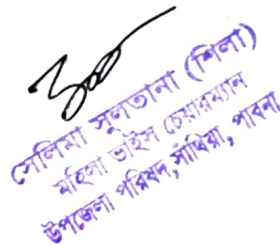 সেলিমা সুলতানা (শিলা)
মহিলা ভাইস চেয়ারম্যান
উপজেলা পরিষদ, সাঁথিয়া, পাবনা